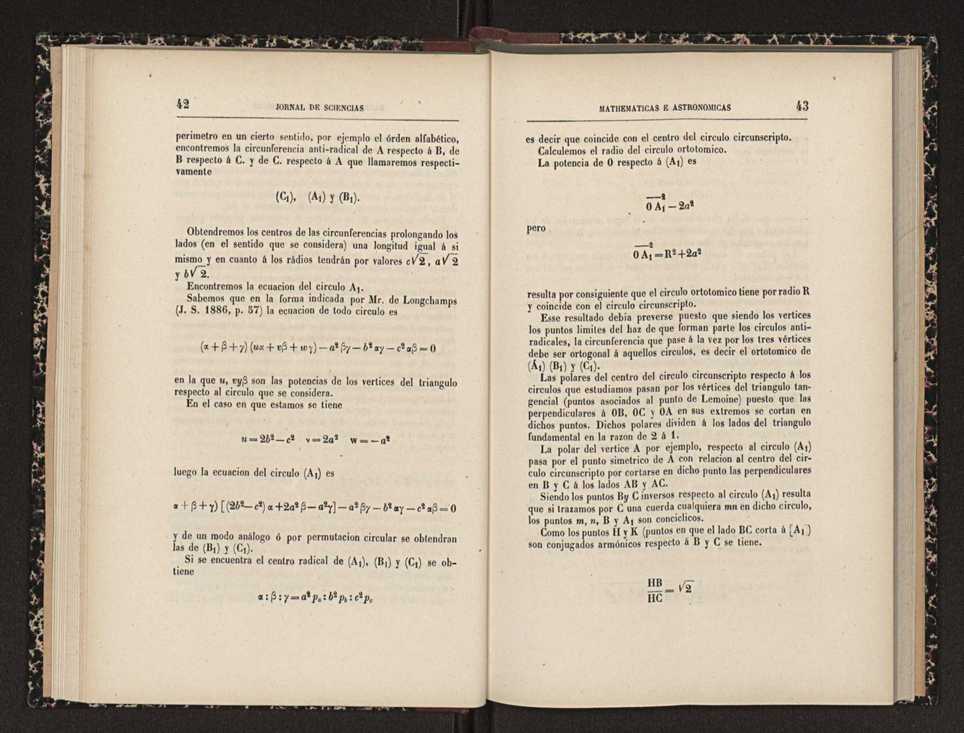 42
JORNAL DE SCIENCIAS
perimetro en un cierto sentido, por ejemplo el órden alfabético,
encontremos la circunferencia anti-radical de A respecto á B, de
B respecto á C. y de C. respecto á A que llamaremos respecti-
vamente
(C₁), (A₁) y (B₁).
Obtendremos los centros de las circunferencias prolongando los
lados (en el sentido que se considera) una longitud igual á si
mismo y en cuanto á los rádios tendrán por valores c√2, a√2
y b√2.
Encontremos la ecuacion del circulo A₁.
Sabemos que en la forma indicada por Mr. de Longchamps
(J. S. 1886, p. 57) la ecuacion de todo circulo es
(α + β + γ) (uα + vβ + wγ) — a² βγ — b² αγ — c² αβ = 0
en la que u, vyβ son las potencias de los vertices del triangulo
respecto al circulo que se considera.
En el caso en que estamos se tiene
u = 2b² — c² v = 2a² w = — a²
luego la ecuacion del circulo (A₁) es
α + β + γ) [(2b² — c²) α + 2a² β — a²γ] — a² βγ — b² αγ — c² αβ = 0
y de un modo análogo ó por permutacion circular se obtendran
las de (B₁) y (C₁).
Si se encuentra el centro radical de (A₁), (B₁) y (C₁) se ob-
tiene
α : β : γ = a² pₐ : b² p_b : c² p_c
MATHEMATICAS E ASTRONOMICAS
43
es decir que coincide con el centro del circulo circunscripto.
Calculemos el radio del circulo ortotomico.
La potencia de O respecto á (A₁) es
O A₁² — 2a²
pero
O A₁² = R² + 2a²
resulta por consiguiente que el circulo ortotomico tiene por radio R
y coincide con el circulo circunscripto.
Esse resultado debia preverse puesto que siendo los vertices
los puntos limites del haz de que forman parte los circulos anti-
radicales, la circunferencia que pase á la vez por los tres vértices
debe ser ortogonal á aquellos circulos, es decir el ortotomico de
(A₁) (B₁) y (C₁).
Las polares del centro del circulo circunscripto respecto á los
circulos que estudiamos pasan por los vértices del triangulo tan-
gencial (puntos asociados al punto de Lemoine) puesto que las
perpendiculares á OB, OC y OA en sus extremos se cortan en
dichos puntos. Dichos polares dividen á los lados del triangulo
fundamental en la razon de 2 á 1.
La polar del vertice A por ejemplo, respecto al circulo (A₁)
pasa por el punto simetrico de A con relacion al centro del cir-
culo circunscripto por cortarse en dicho punto las perpendiculares
en B y C á los lados AB y AC.
Siendo los puntos By C inversos respecto al circulo (A₁) resulta
que si trazamos por C una cuerda cualquiera mn en dicho circulo,
los puntos m, n, B y A₁ son conciclicos.
Como los puntos H y K (puntos en que el lado BC corta á [A₁])
son conjugados armónicos respecto á B y C se tiene.
HB
HC = √2